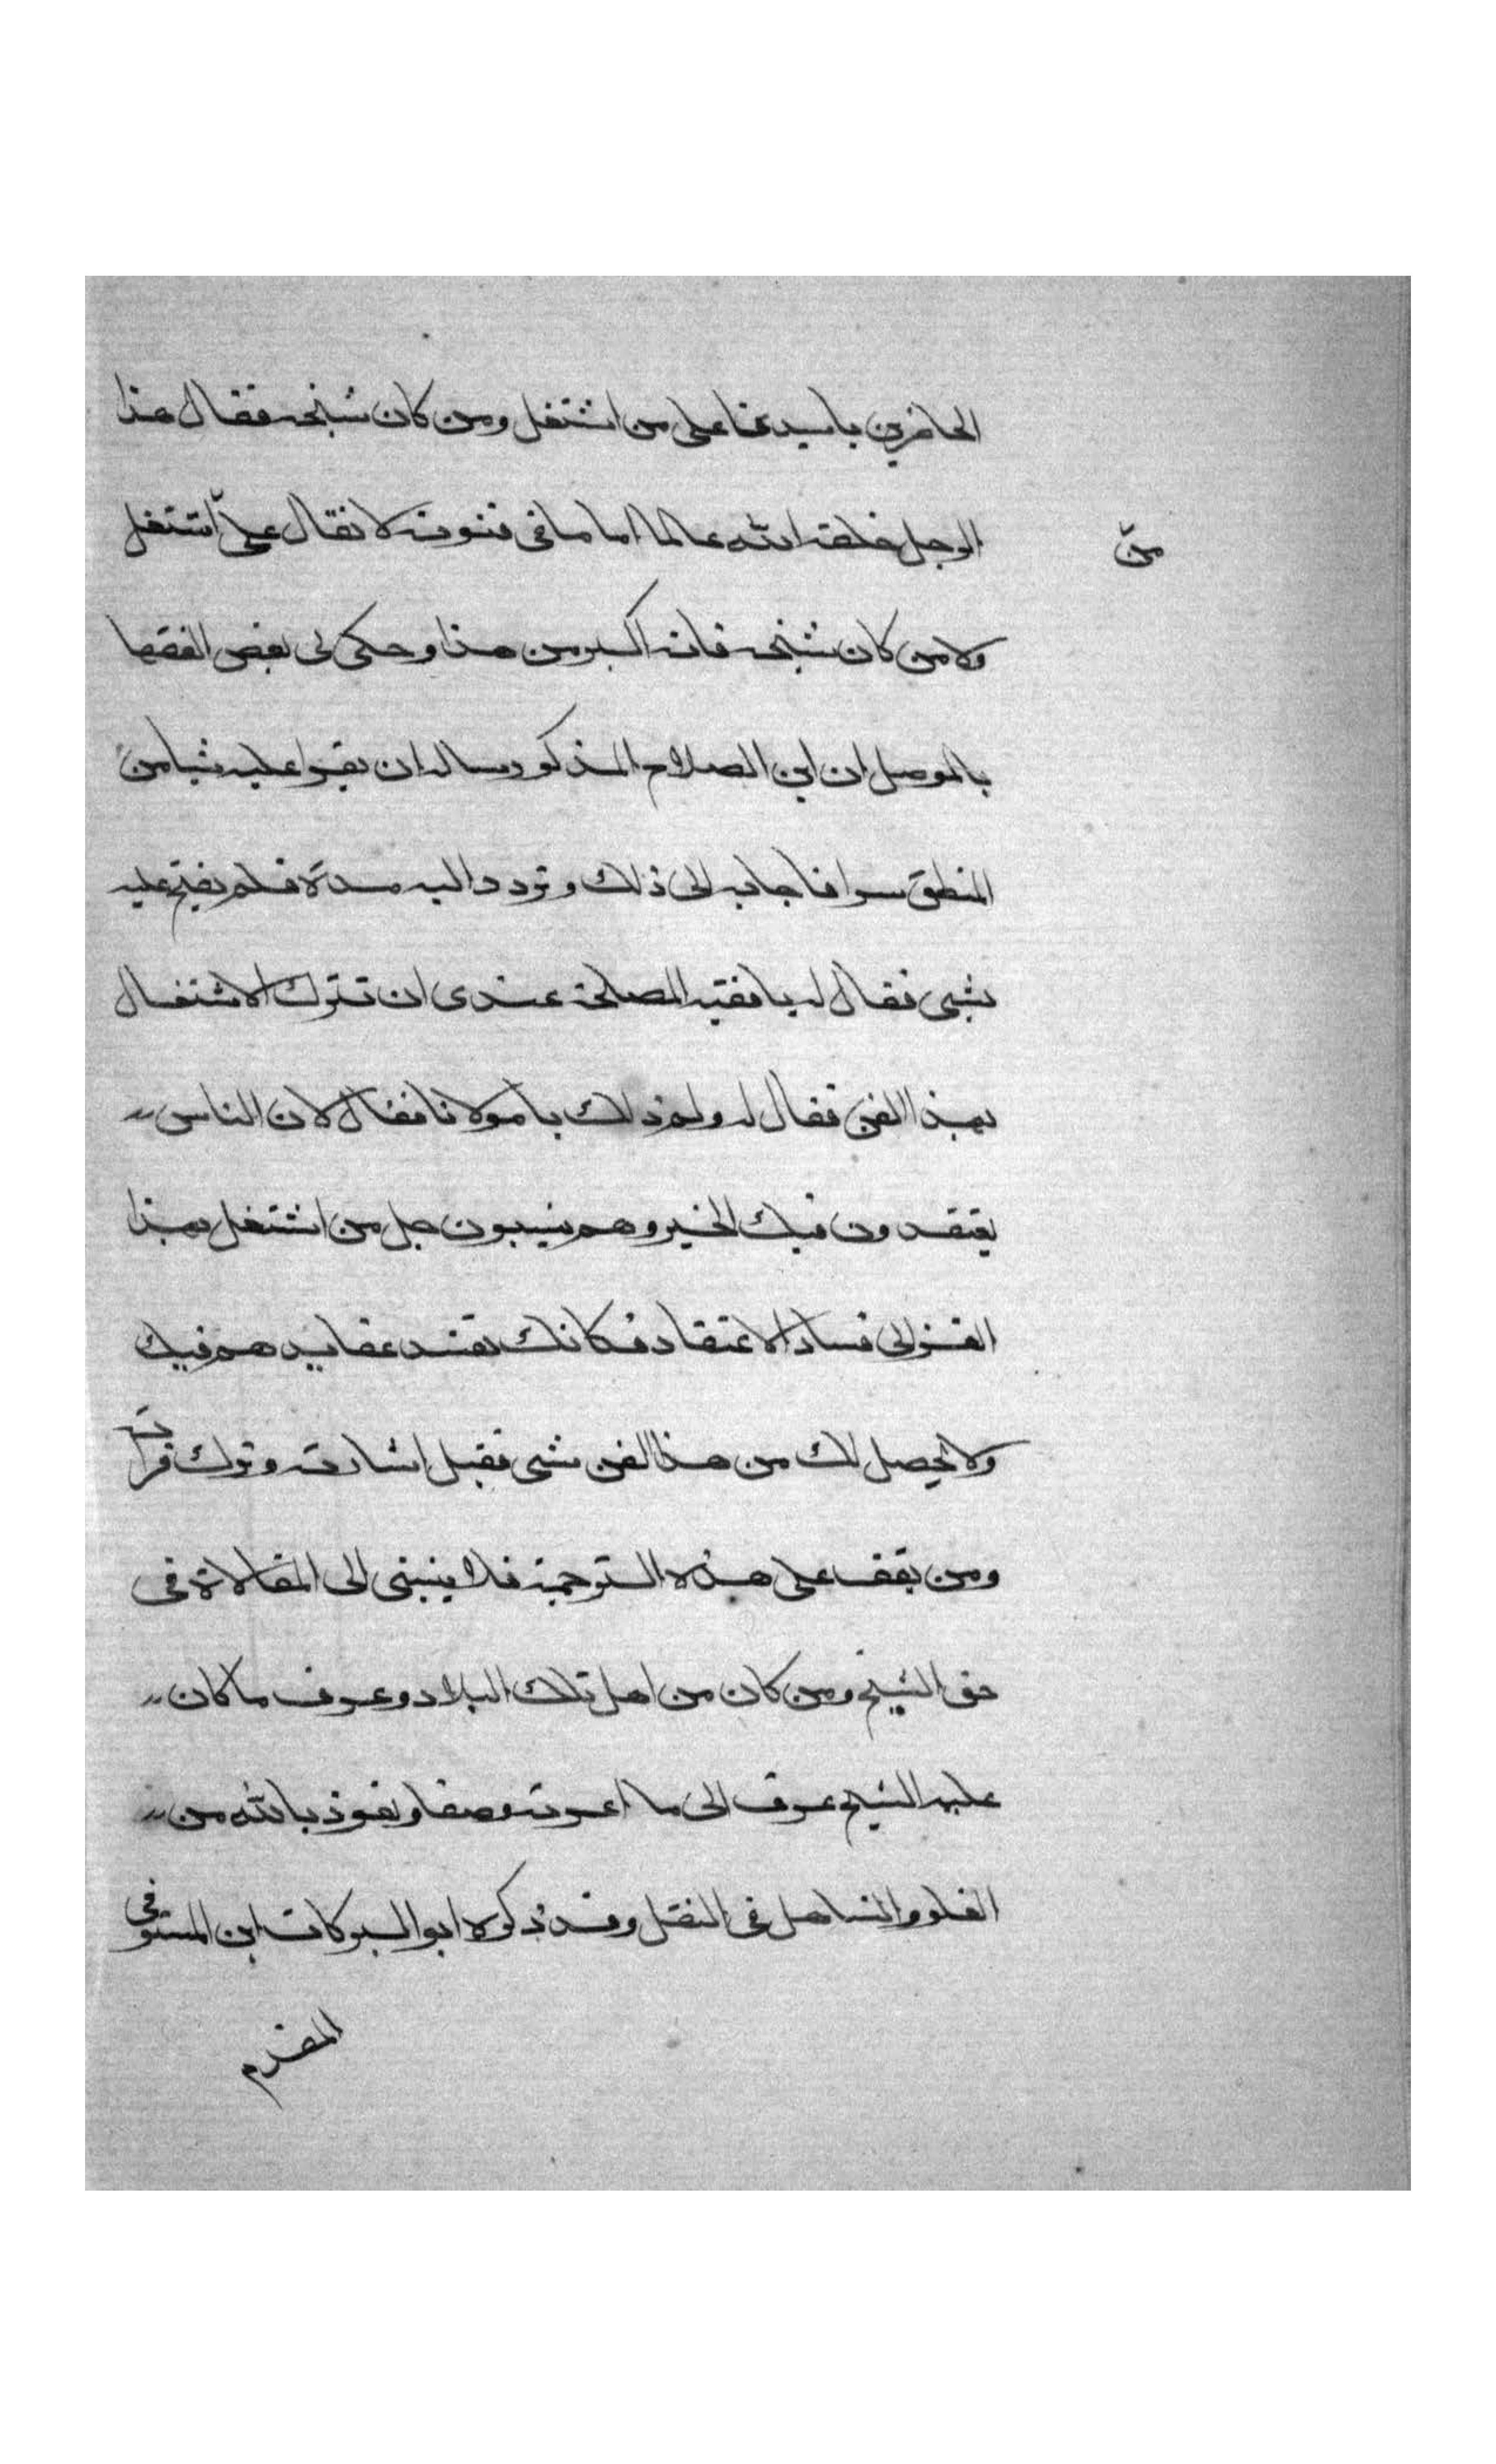 الحاضرين يا سيدنا على من اشتغل ومن كان شيخه فقال هذا
الرجل خلقه الله عالما اماما فى فنونه لا يقال على اشتغل
من
ولا من كان شيخه فانه اكبر من هذا وحكى لى بعض الفقها
بالموصل ان ابن الصلاح المذكور ساله ان يقرا عليه شيا من
المنطق سرا فاجابه الى ذلك وتردد اليه مدة فلم يفتح عليه
بشى فقال له يا فقيه المصلحة عندى ان تترك الاشتغال
بهذا الفن فقال له ولم ذلك يا مولانا فقال لان الناس
يعتقدون فيك الخير وهم ينسبون كل من اشتغل بهذا
الفن الى فساد الاعتقاد فكانك تفسد عقايدهم فيك
ولا يحصل لك من هذا الفن شى فقبل اشارته وترك قراته
ومن يقف على هذه الترجمة فلا ينسبنى الى المغالاة فى
حق الشيخ ومن كان من اهل تلك البلاد وعرف ما كان
عليه الشيخ عرف انى ما اعرته وصفا ونعوذ بالله من
الغلو والتساهل فى النقل وقد ذكره ابو البركات ابن المستوفى
المقدم